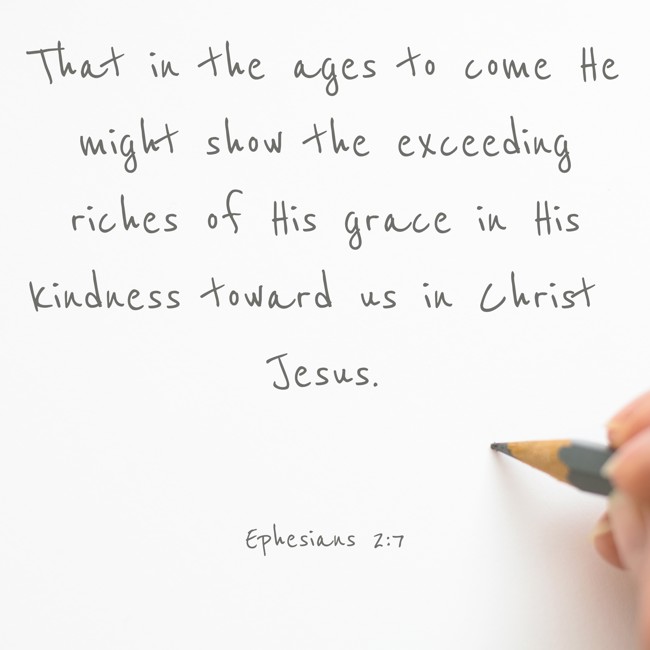 That in the ages to come He
might show the exceeding
riches of His grace in His
kindness toward us in Christ
Jesus.
Ephesians 2:7